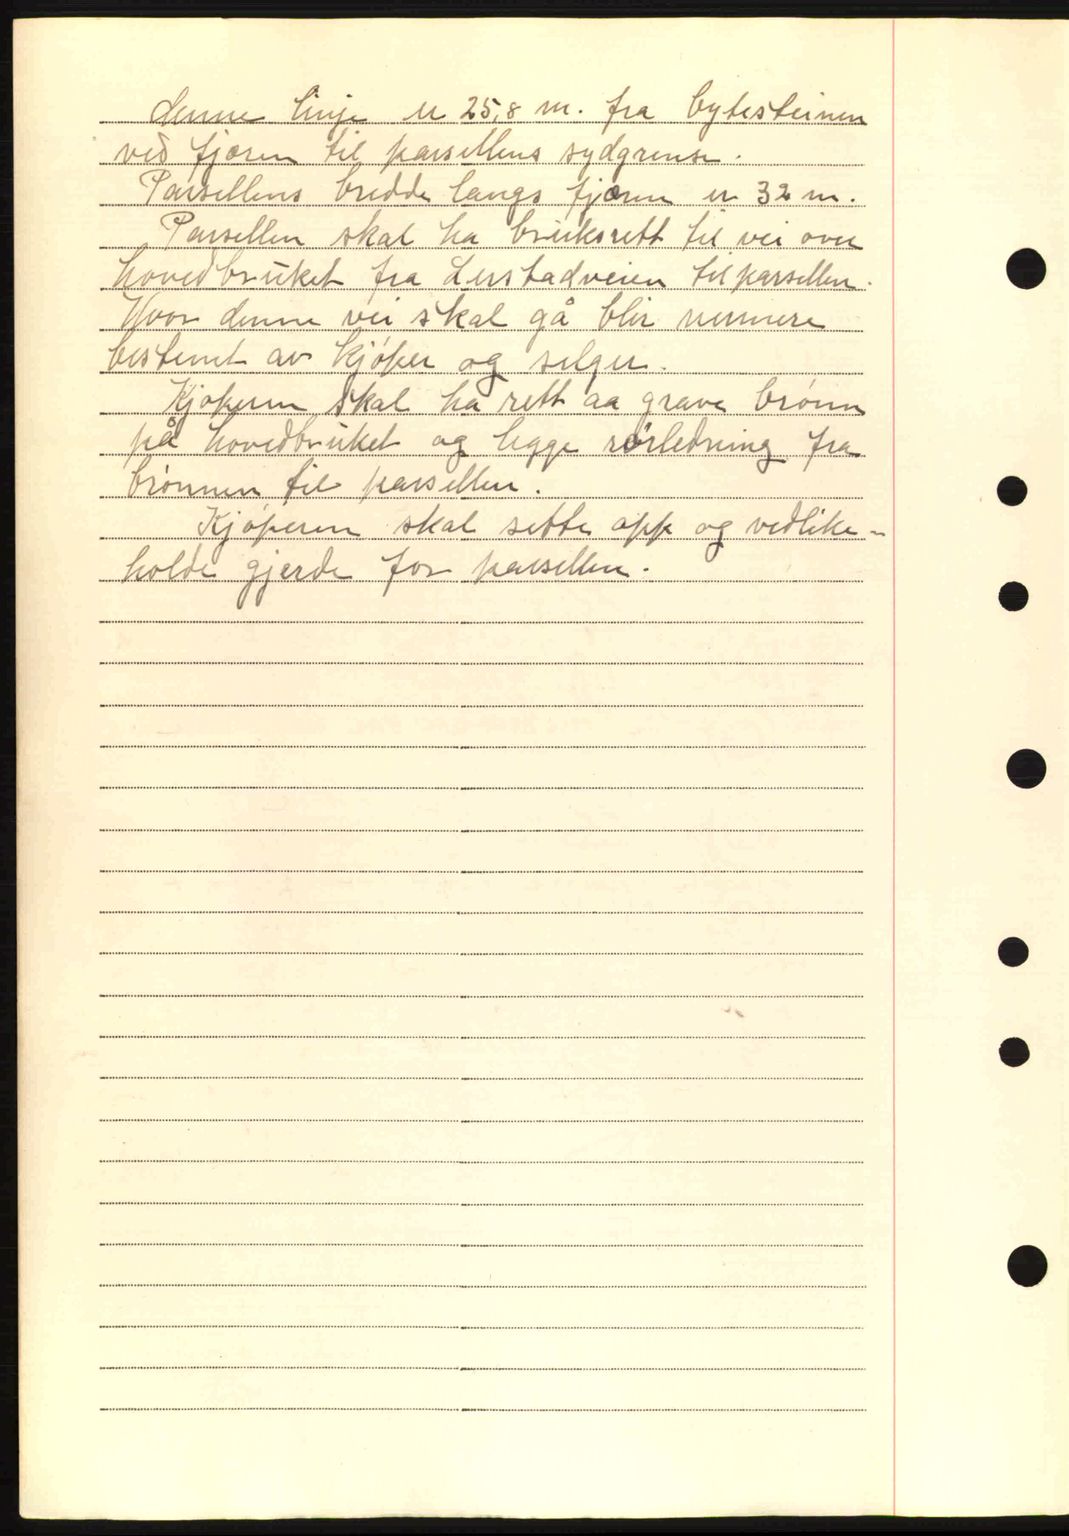 denne linje er 25,8 m. fra bytesteinen
ved fjæren til parsellens sydgrense.
Parsellens bredde langs fjæren er 32 m.
Parsellen skal ha bruksrett til vei over
hovedbruket fra Lerstadveien til parsellen.
Hvor denne vei skal gå blir nermere
bestemt av kjóper og selger.
Kjóperen skal ha rett aa grave brónn
på hovedbruket og legge rörledning fra
brónnen til parsellen.
Kjóperen skal sette opp og vedlike-
holde gjerde for parsellen.